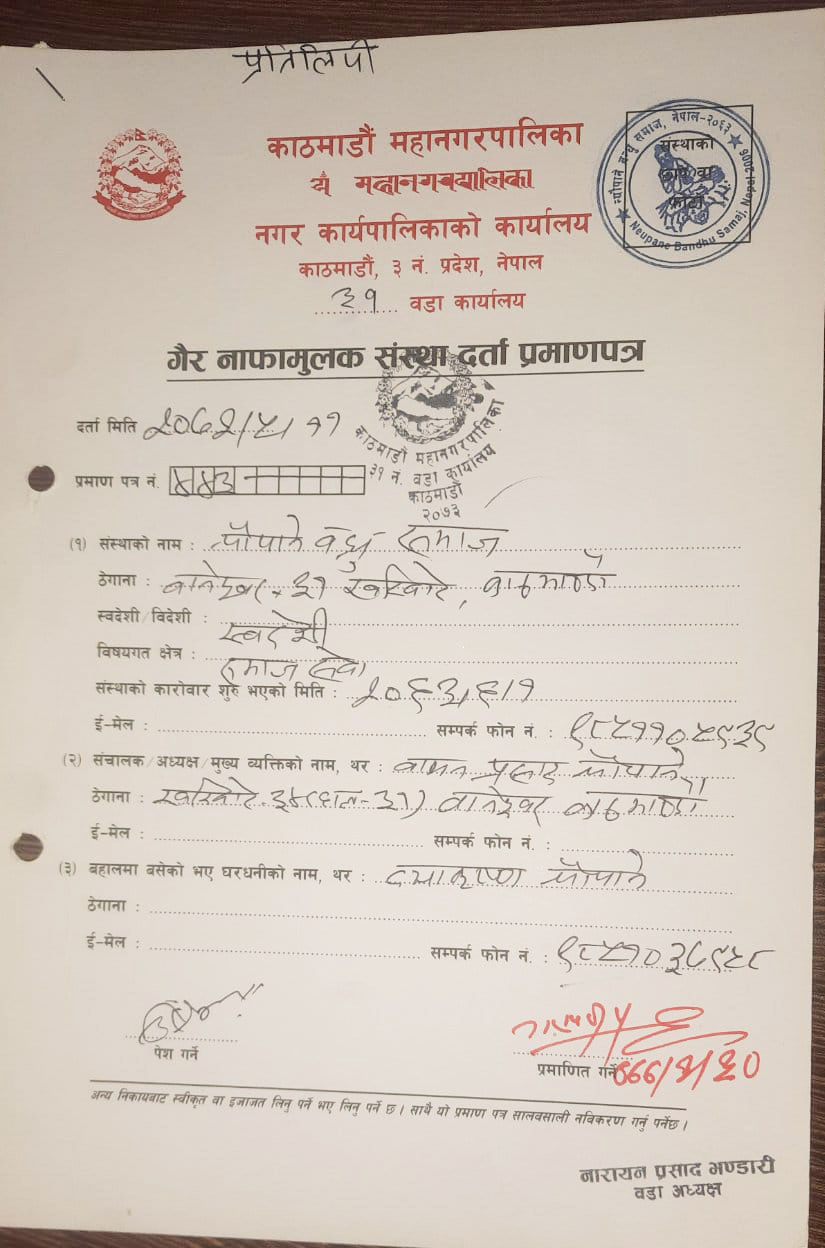 प्रतिलिपी
काठमाडौं महानगरपालिका
नगर कार्यपालिकाको कार्यालय
काठमाडौं, ३ नं. प्रदेश, नेपाल
३१ वडा कार्यालय
न्यौपाने बन्धु समाज, नेपाल-२०६३
संस्थाको
छाप वा
फोटो
Neupane Bandhu Samaj, Nepal 2006
गैर नाफामुलक संस्था दर्ता प्रमाणपत्र
काठमाडौं महानगरपालिका
३१ नं. वडा कार्यालय
काठमाडौं
२०७३
दर्ता मिति
प्रमाण पत्र नं. ४४३
(१) संस्थाको नाम : न्यौपाने बन्धु समाज
ठेगाना : बानेश्वर - ३१ खरिबोट, काठमाडौं
स्वदेशी/विदेशी : स्वदेशी
विषयगत क्षेत्र : समाज सेवा
संस्थाको कारोवार शुरु भएको मिति : २०६३/६/१
ई-मेल : सम्पर्क फोन नं. : ९८५११०५९३९
(२) संचालक/अध्यक्ष/मुख्य व्यक्तिको नाम, थर : वामन प्रसाद न्यौपाने
ठेगाना : खरिबोट-३४(हाल-३१) बानेश्वर काठमाडौं
ई-मेल : सम्पर्क फोन नं. :
(३) बहालमा बसेको भए घरधनीको नाम, थर : न्यौपाने
ठेगाना :
ई-मेल : सम्पर्क फोन नं. : ९८५१०३८९५८
पेश गर्ने
प्रमाणित गर्ने
अन्य निकायबाट स्वीकृत वा इजाजत लिनु पर्ने भए लिनु पर्ने छ । साथै यो प्रमाण पत्र सालवसाली नविकरण गर्नु पर्नेछ ।
नारायन प्रसाद भण्डारी
वडा अध्यक्ष